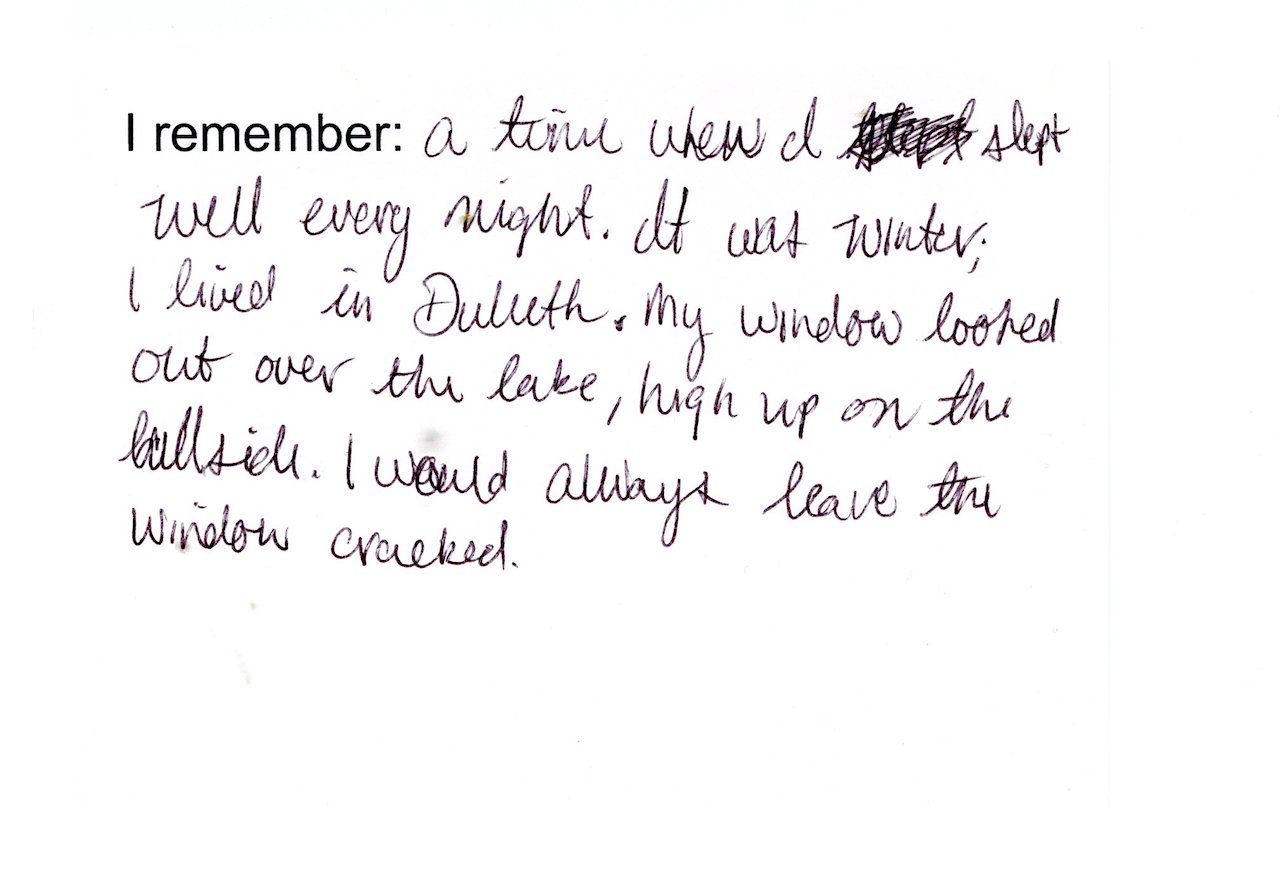 I remember: a time when I slept
well every night. It was winter;
I lived in Duluth. My window looked
out over the lake, high up on the
hillside. I would always leave the
window cracked.